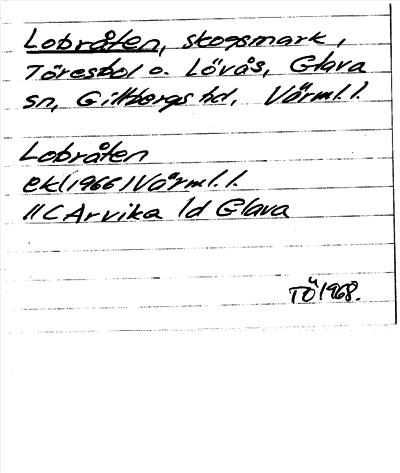 Lobråten, skogsmark,
Töresbol o. Lövås, Glava
sn, Gillbergs hd, Värml. l.
Lobråten
ek (1966) Värml. l.
11 C Arvika 1d Glava
TÖ 1968.